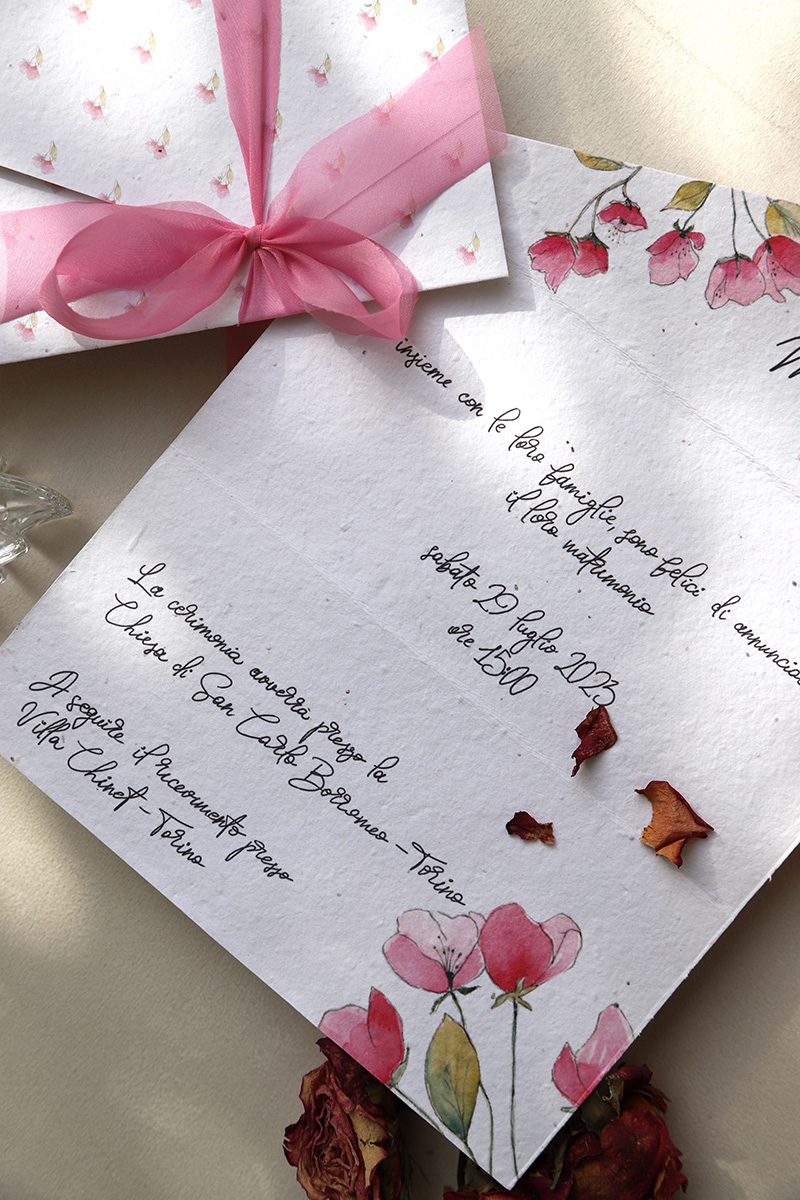 M
insieme con le loro famiglie, sono felici di annuncia
il loro matrimonio
sabato 29 luglio 2023
ore 15:00
La cerimonia avverrà presso la
Chiesa di San Carlo Borromeo - Torino
A seguire il ricevimento presso
Villa Chinet - Torino